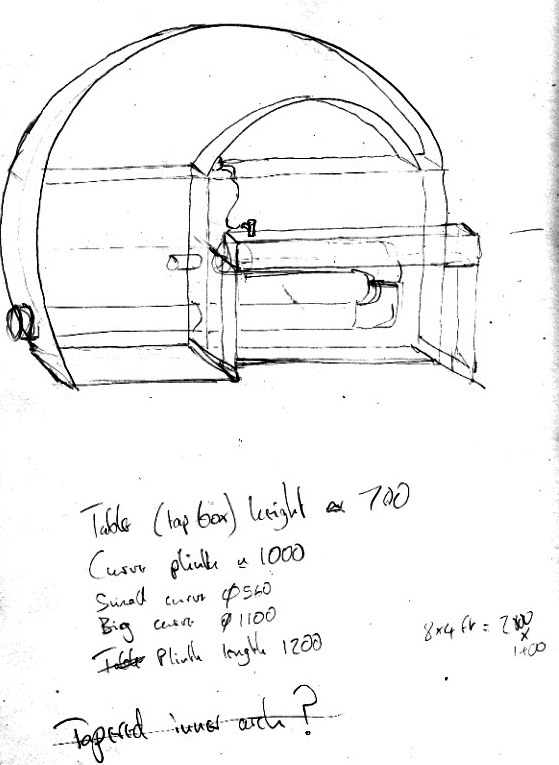 Table (tap box) height ≈ 700
Curve plinth ≈ 1000
Small curve ϕ560
Big curve ϕ1100
Table Plinth length 1200
8x4 ft =
x
Tapered inner arch?